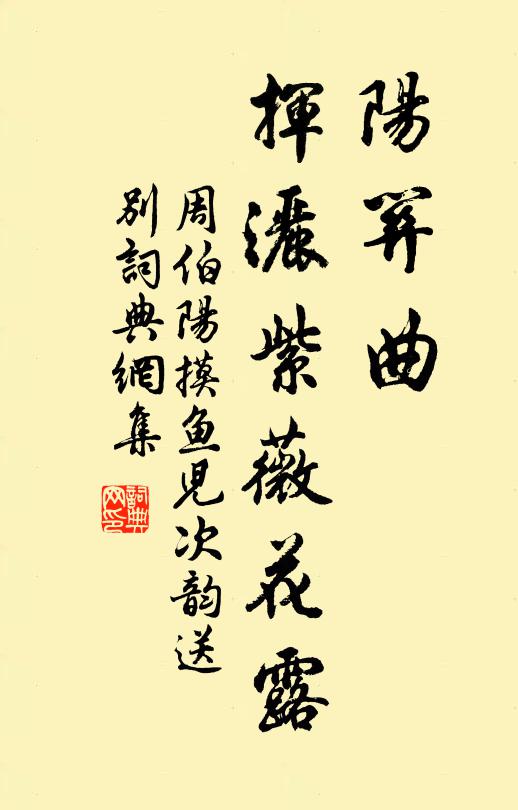 陽關曲
揮灑紫薇花露
周伯陽摸魚兒次韵送
別詞典網集
詞典
网印